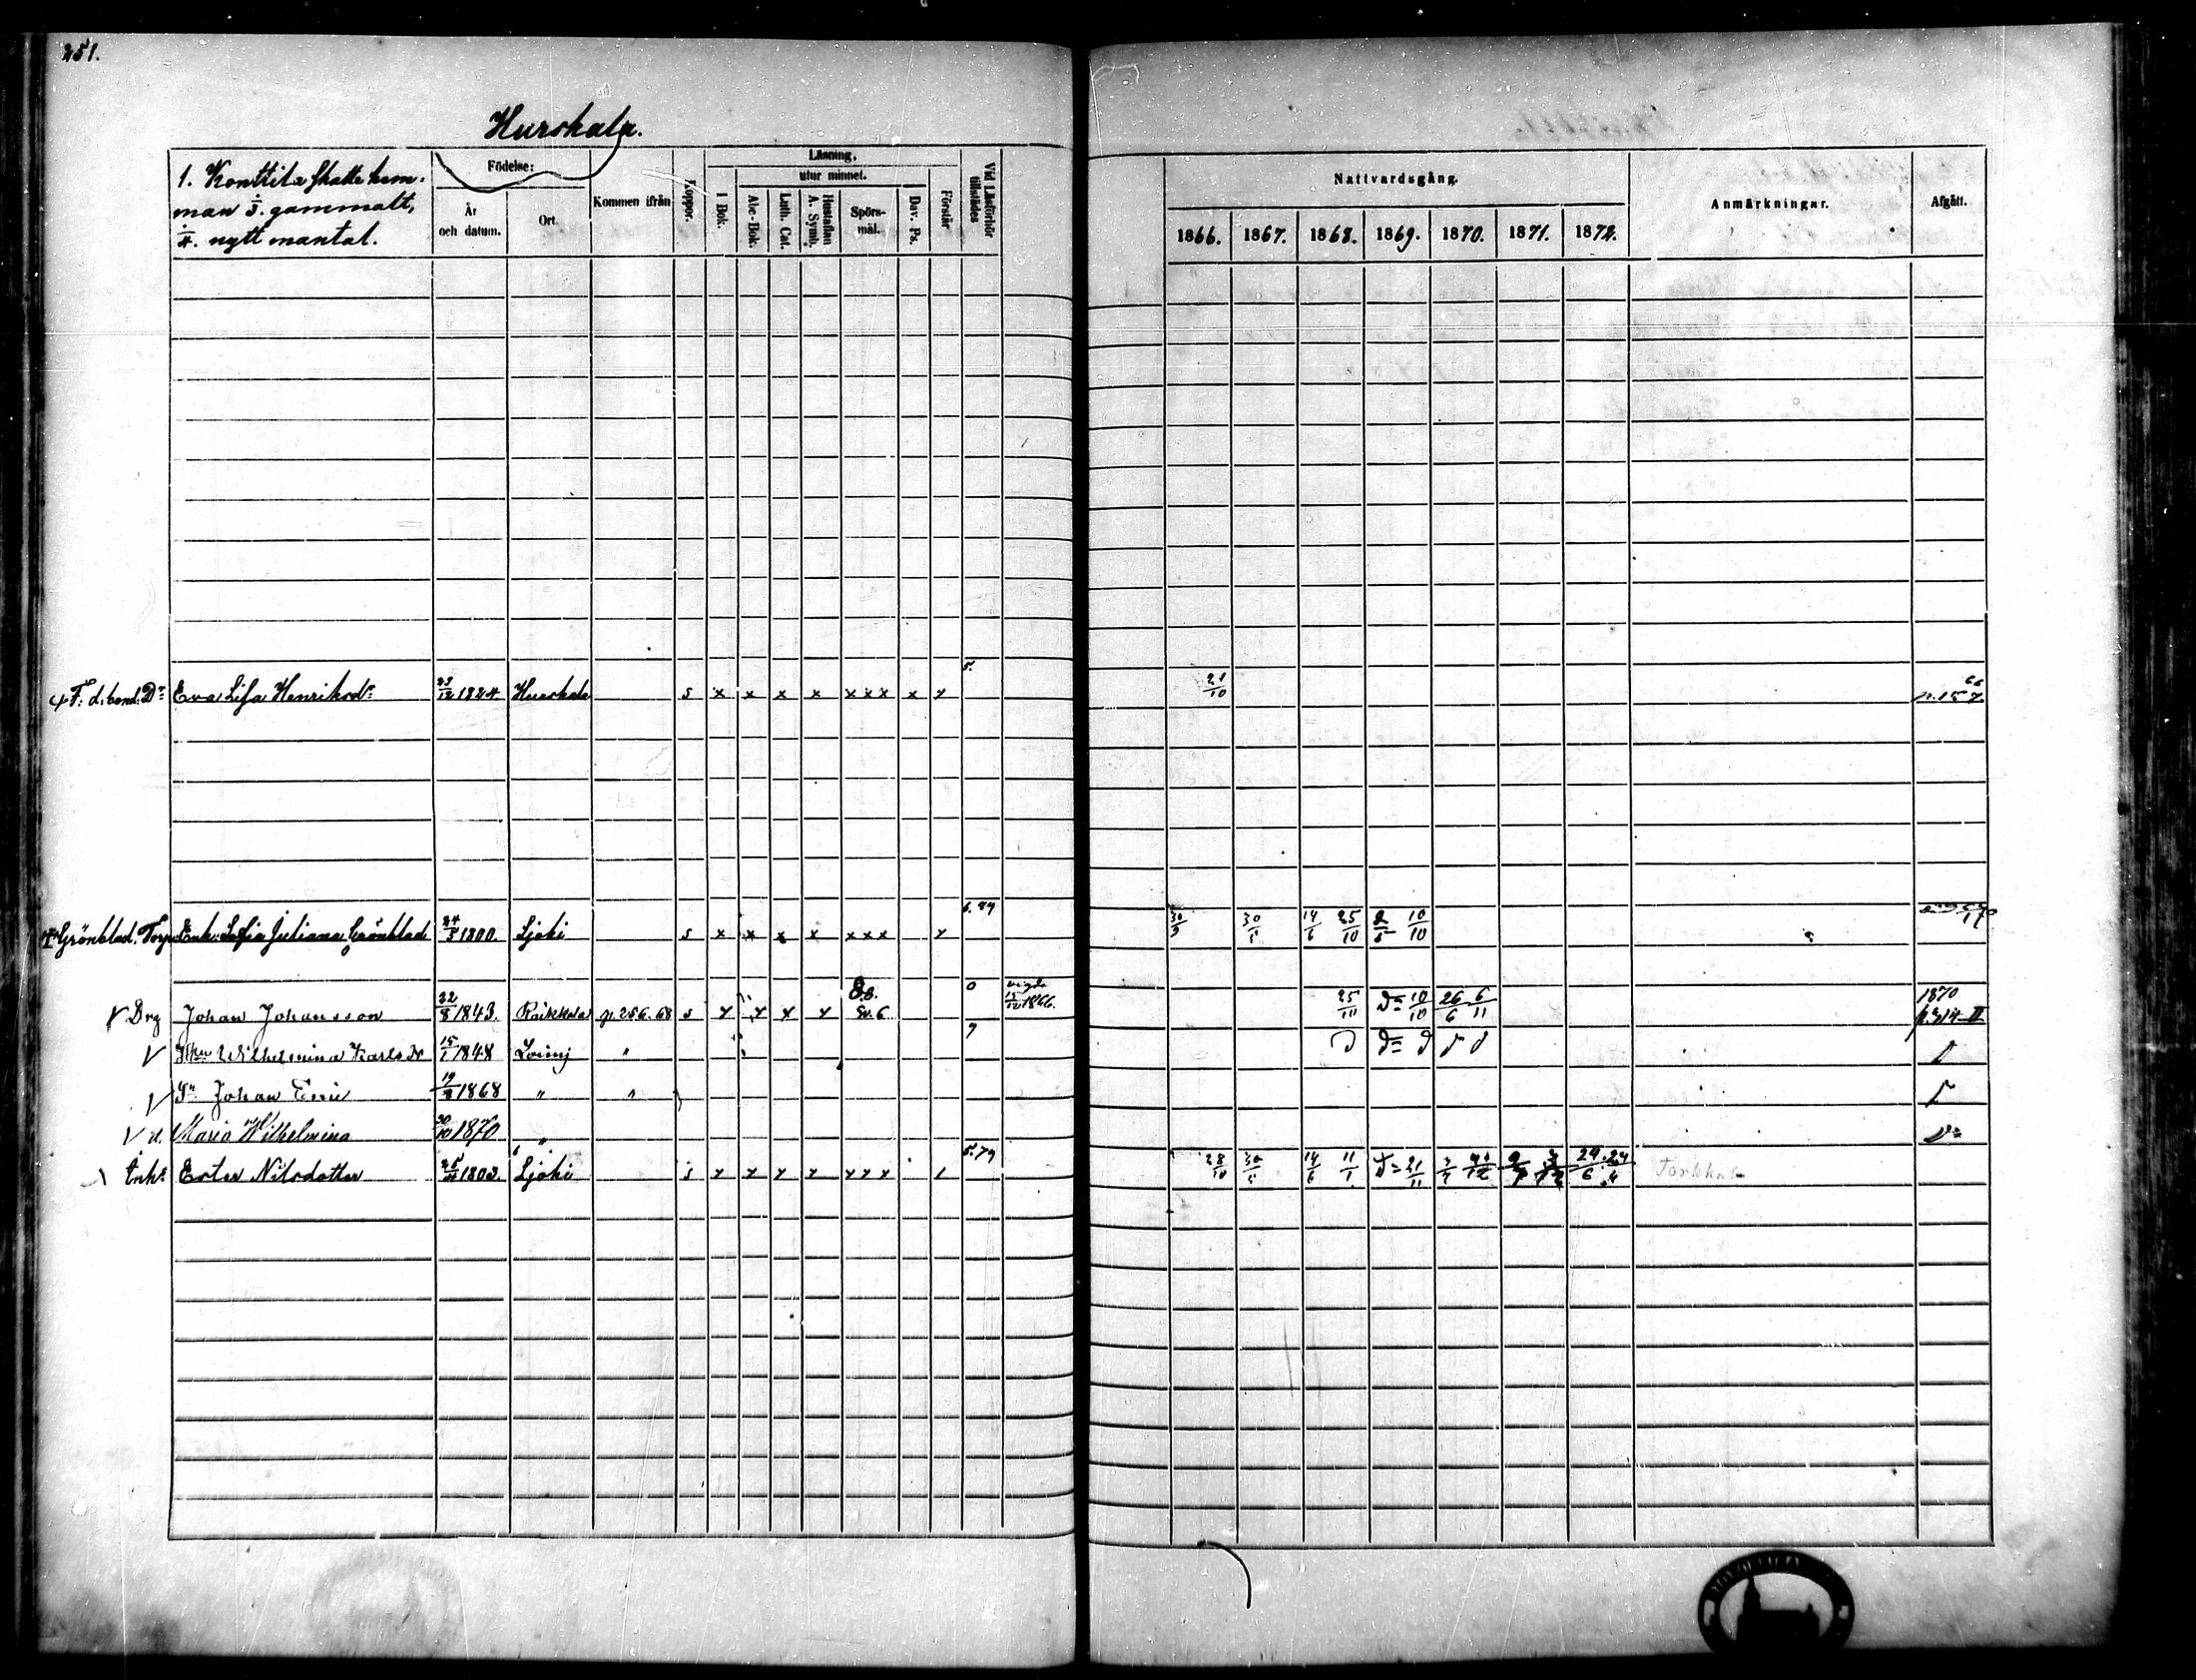 251.
Hurskala.
1. Konttila Skatte hem-
man 1/3. gammalt,
1/4. nytt mantal.
Födelse:
År och datum.
Ort.
Kommen ifrån
Koppor.
Läsning,
utur minnet.
I Bok.
Abc-Bok.
Luth. Cat.
Hustaflan A. Symb.
Spörs-mål.
Dav. Ps.
Förstår
Vid Läsförhör tillstädes
Nattvardsgång.
1866. 1867. 1868. 1869. 1870. 1871. 1872.
Anmärkningar.
Afgått.
F. d. bond. Dr Eva Lisa Henriksdr 23/12 1824 Hurskala s x x x x xxx x x 5. 21/10 66 p. 157
Grönblad. Torp Enk. Sofia Juliana Grönblad 24/5 1800. Ljoki s x x x x xxx x 30/9 30/5 14/6 25/10 2/5 10/10
Drg Johan Johansson 22/8 1843. Räikkälä p. 256. 68 s x x x x Sv. 6 0 vigde 15/12 1866. 25/10 10/10 26/6 6/11 1870 p. 314 II
Hu Wilhelmina Karlsdr 15/1 1848 Loimj " 7
Sn Johan Enni 19/8 1868 " "
d. Maria Wilhelmina 30/10 1870 "
Enk. Ester Nilsdotter 25/11 1803. Ljoki s x x x x xxx 1 5.79 28/10 30/5 14/6 11/1 21/11 24/6